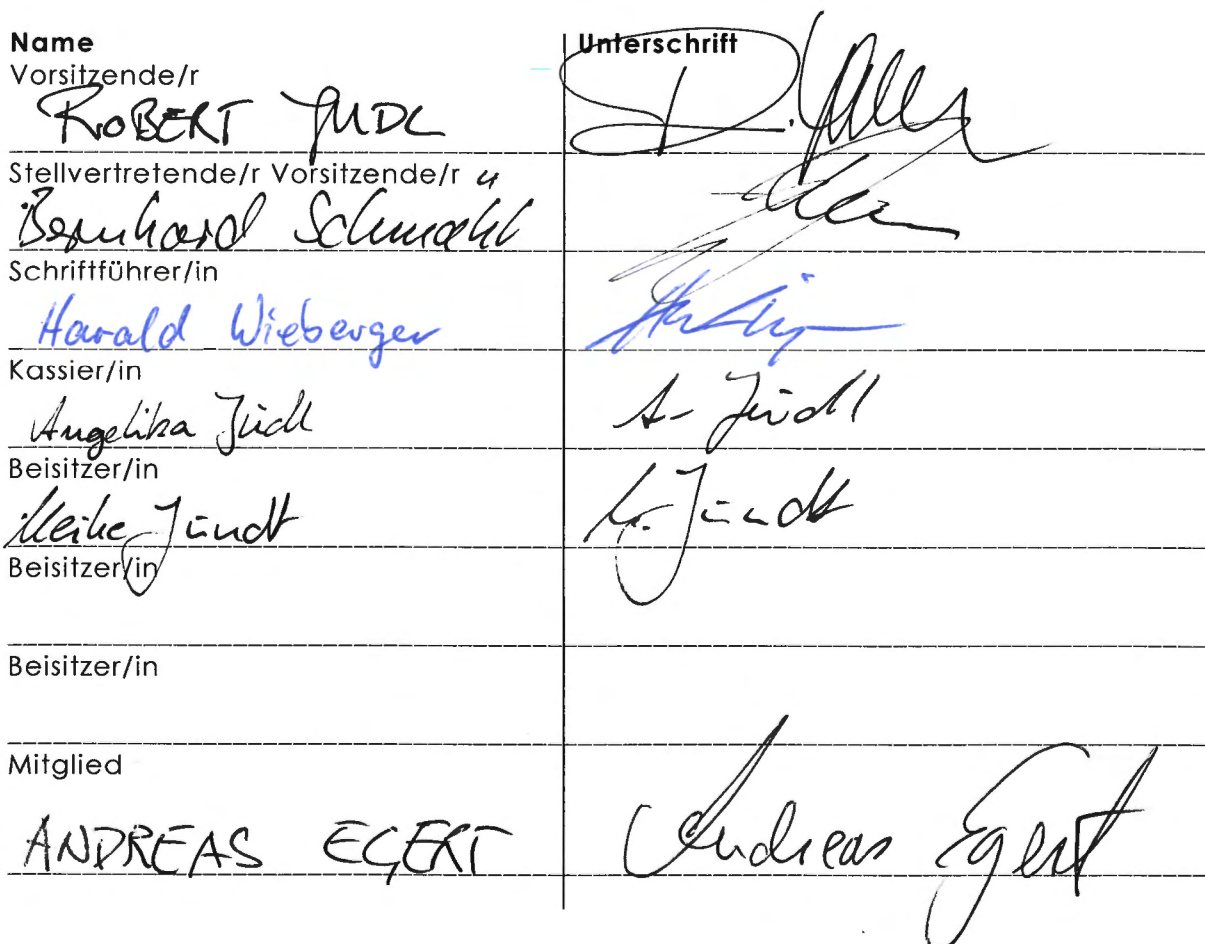 Name Unterschrift
Vorsitzende/r
ROBERT
Stellvertretende/r Vorsitzende/r
Bernhard
Schriftführer/in
Harald Wieberger
Kassier/in
Angelika Jüdl A. Jüdl
Beisitzer/in
Meike Jündt M. Jündt
Beisitzer/in
Beisitzer/in
Mitglied
ANDREAS EGERT Andreas Egert